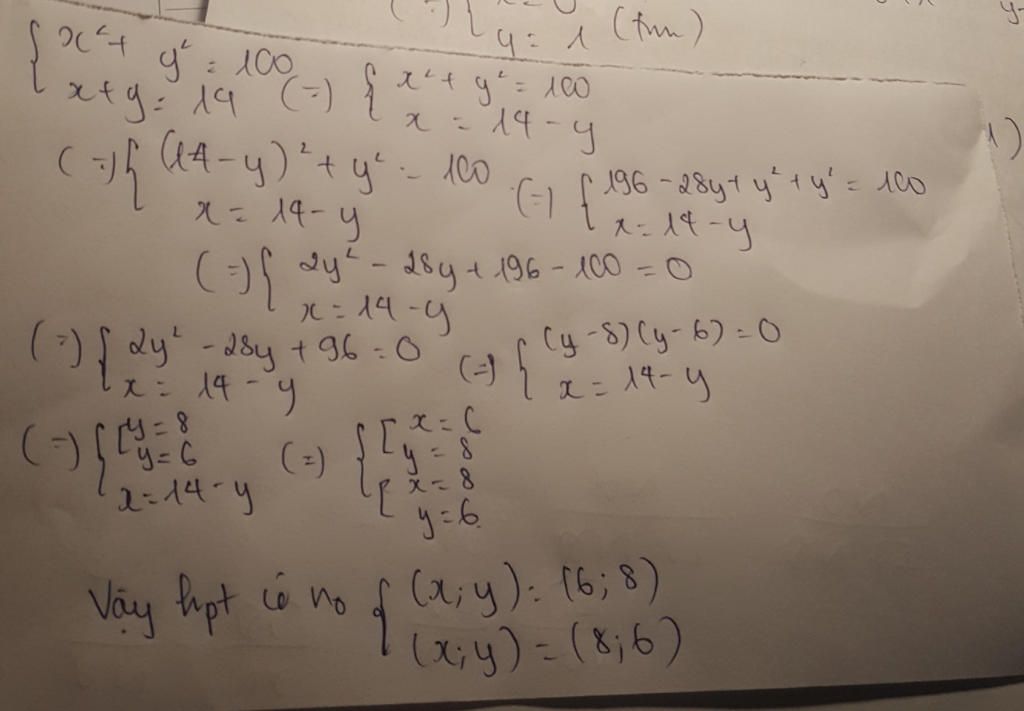 y = 1 (tm)
{ x² + y² = 100
x + y = 14 (=) { x² + y² = 100
x = 14 - y
(=) { (14 - y)² + y² = 100
x = 14 - y (=) { 196 - 28y + y² + y² = 100
x = 14 - y
(=) { 2y² - 28y + 196 - 100 = 0
x = 14 - y
(=) { 2y² - 28y + 96 = 0
x = 14 - y (=) { (y - 8)(y - 6) = 0
x = 14 - y
(=) { [ y = 8
y = 6
x = 14 - y (=) { [ x = 6
y = 8
[ x = 8
y = 6
Vậy hpt có no { (x; y) = (6; 8)
(x; y) = (8; 6)